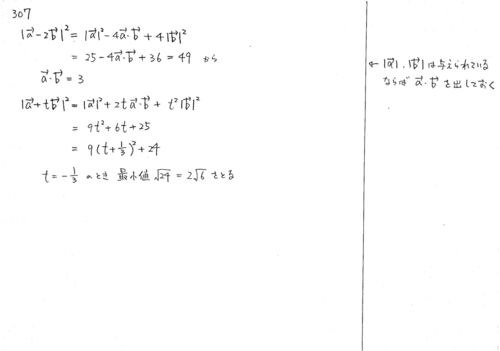 307
|a⃗-2b⃗|² = |a⃗|²-4a⃗・b⃗+4|b⃗|²
= 25-4a⃗・b⃗+36 = 49 から
a⃗・b⃗ = 3
|a⃗+tb⃗|² = |a⃗|²+2ta⃗・b⃗+t²|b⃗|²
= 9t²+6t+25
= 9(t+1/3)²+24
t = -1/3 のとき 最小値 √24 = 2√6 をとる
← |a⃗|, |b⃗| は与えられている
ならば a⃗・b⃗ を出しておく